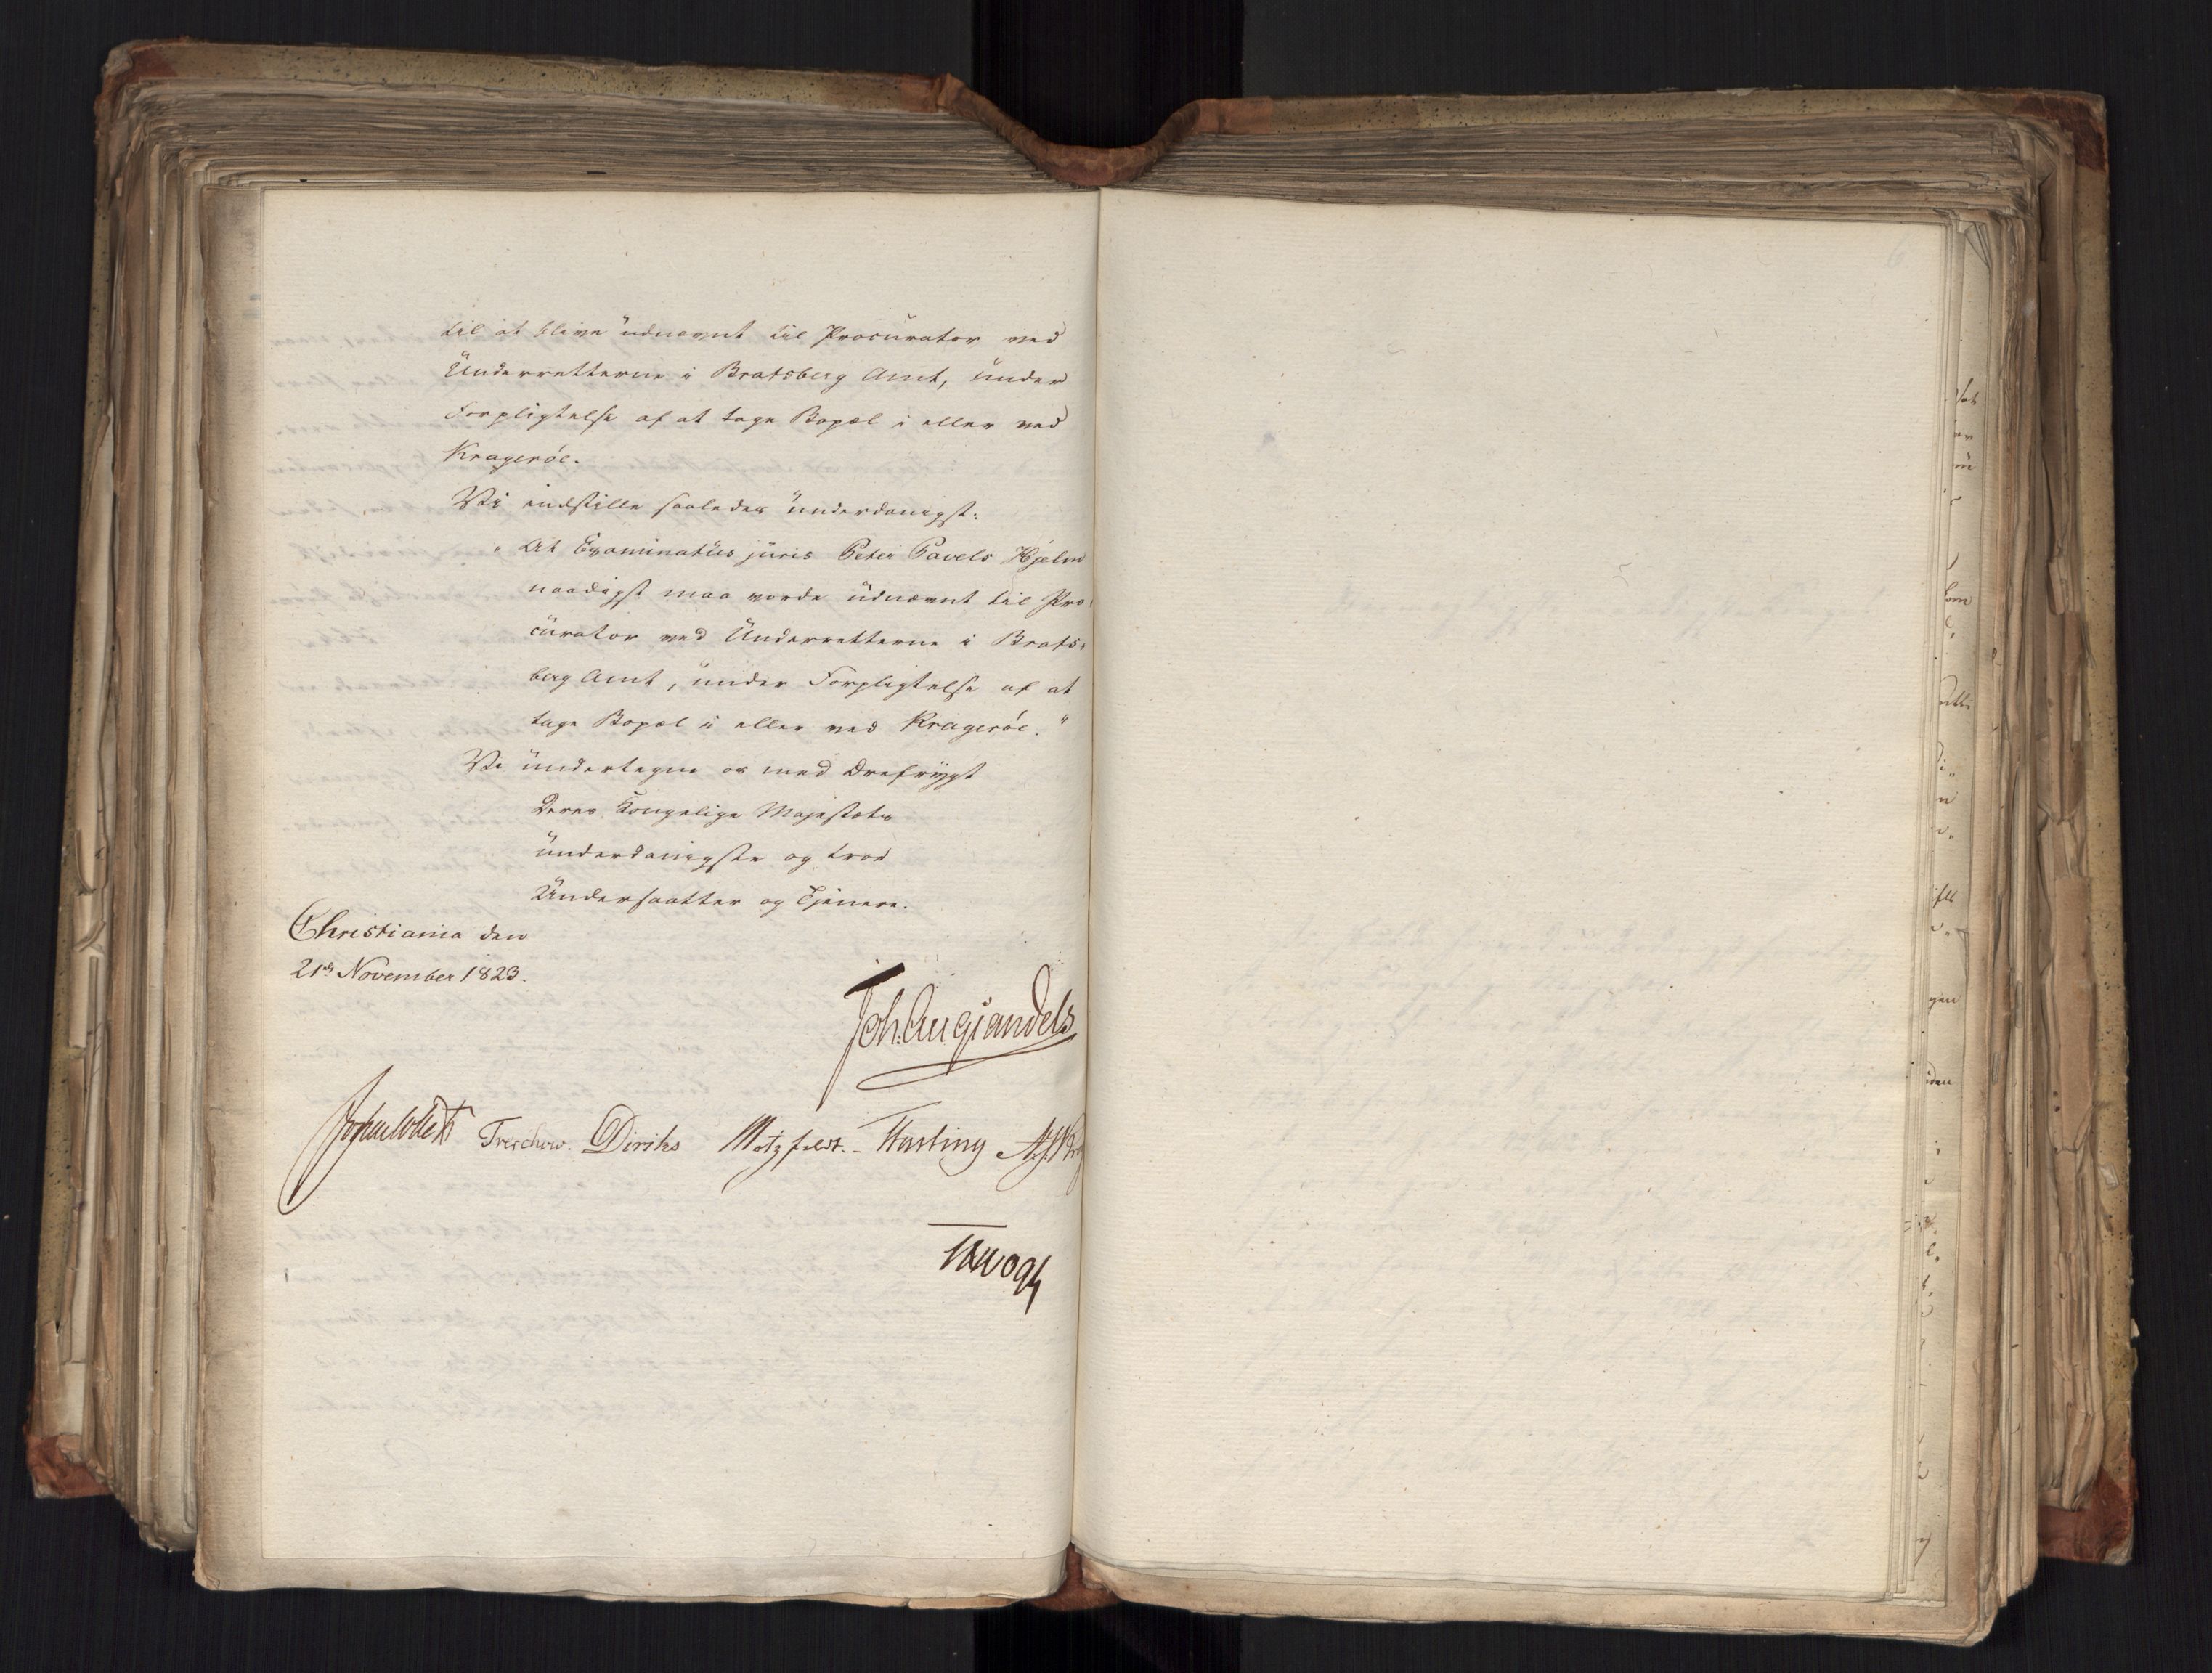 til at blive udnævnt til Procurator ved
Underretterne i Bratsberg Amt, under
Forpligtelse af at tage Bopæl i eller ved
Kragerøe.
Vi indstille saaledes underdanigst:
"At Examinatus juris Peter Pavels Hjelm
naadigst maa vorde udnævnt til Pro-
curator ved Underretterne i Brats-
berg Amt, under Forpligtelse af at
tage Bopæl i eller ved Kragerøe."
Vi undertegne os med Ærefrygt
Deres Kongelige Majestæts
underdanigste og troe
Undersaatter og Tjenere.
Christiania den
21de November 1823.
Joh. Aug Sandels
Jonas Collett Treschow. Diriks Motzfeldt. Fasting
Krogh